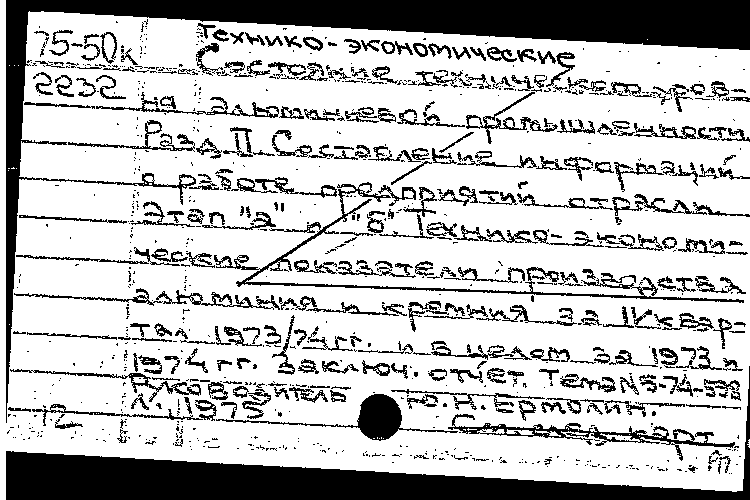 75-50к Технико-экономические
Состояние технического уров-
2232 на алюминиевой промышленности.
Разд. II. Составление информаций
о работе предприятий отрасли.
Этап "а" и "б". Технико-экономи-
ческие показатели производства
алюминия и кремния за IV квар-
тал 1973/74 гг. и в целом за 1973 и
1974 гг. Заключ. отчет. Тема № 5-74-538
Руководитель Ю.Н. Ермолин.
Л., 1975.
12 См. след. карт.
РП